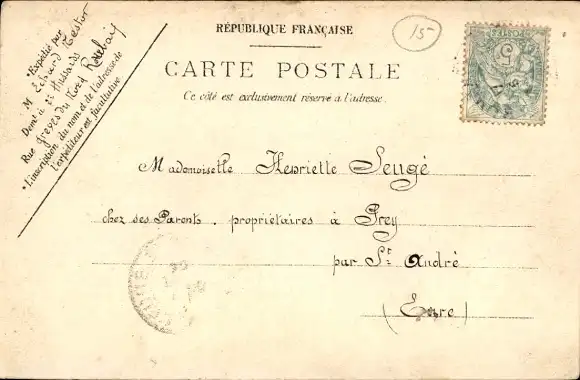 RÉPUBLIQUE FRANÇAISE
15
5
CARTE POSTALE
Ce côté est exclusivement réservé à l'adresse.
• Expédié par
M Echard Nestor
Demt à 22 Hussards
Rue du Nord Roubaix
• L'inscription du nom et de l'adresse de
l'expéditeur est facultative.
Mademoiselle Henriette Seugé
chez ses Parents. propriétaires à Prey
par St André
(Eure)